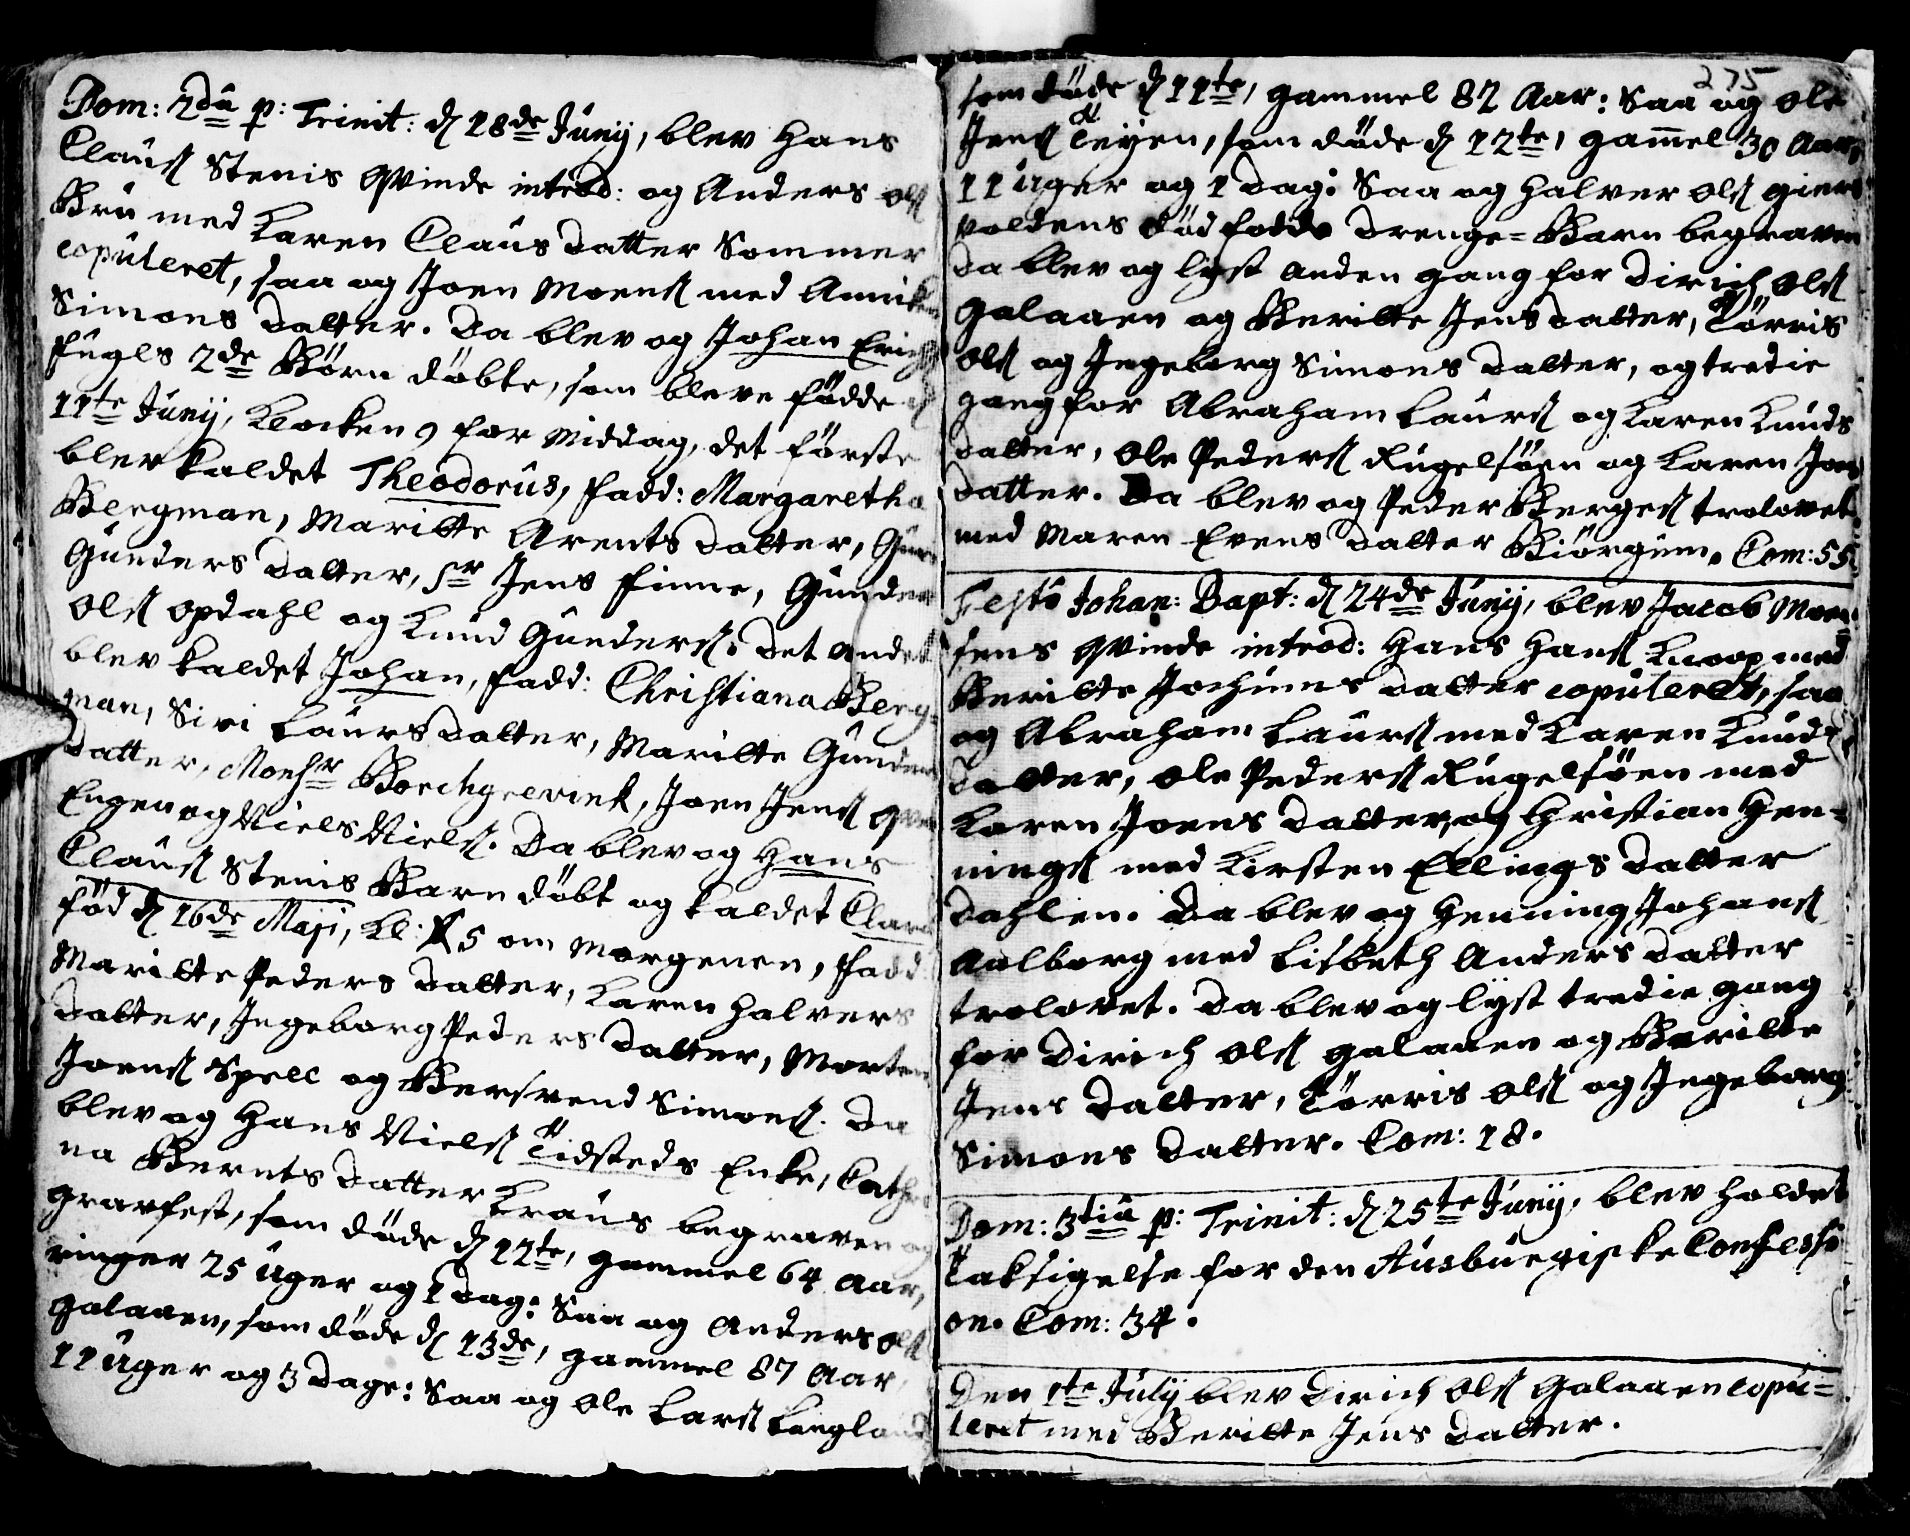 Dom: 2dâ p: Trinit: d 18de Junij, blev Hans
Clausß Stenis Qvinde introd: og Anders Olß
Bru med Karen Clausdatter Sommer
copuleret, saa og Joen Moensß med Anniken
Simons datter. Da blev og Johan Erichß
Fugls 2de Börn döbte, som bleve födde d
11te Junij, Klocken 9 for Middag, det förste
blev kaldet Theodorus, fadd: Margaretha
Bergman, Maritte Arents datter, Guru
Gunders datter, Sr Jens Finne, Gunder
Olß Opdahl og Knud Gundersß. Det andet
blev kaldet Johan, fadd: Christiana Berg-
man, Siri Laursdatter, Maritte Gunders
datter, Monsr Borchgrevink, Joen Jensß
Engen og Niels Nielsß. Da blev og Hans
Clausß Stenis Barn döbt og kaldet Clara
föd d 16de Maji, Kl: 5 om Morgenen, fadd:
Maritte Peders datter, Karen Halvers
datter, Ingeborg Peders datter, Morten
Joensß Spell og Bersvend Simonsß. Da
blev og Hans Nielsß Tidsteds Enke, Cathri
na Bernts datter Kraus begraven og
gravfest, som döde d 12te, gammel 64 Aar,
ringer 25 Uger og 1 dag: Saa og Anders Olß
Galaaen, som döde d 13de, gammel 87 Aar
11 Uger og 3 dage: Saa og Ole Larsß Langland
275
som döde d 11te, gammel 82 Aar: Saa og Ole
Jensß Teyen, som döde d 12te, gam̄el 30 Aar,
11 Uger og 1 dag: Saa og Halver Olß Gier
voldens död fødde drenge-Barn begraven
Da blev og lyst anden gang for Dirich Olß
Galaaen og Beritte Jensdatter, Törris
Olß og Ingeborg Simons datter, og tredie
gang for Abraham Laursß og Karen Knuds
datter, Ole Pedersß Rugelsöen og Karen Joens
datter. Da blev og Peder Bergesß trolovet
med Maren Evens datter Biörgum. Com: 55.
Festo Johan: Bapt: d 24de Junij, blev Jacob Moen-
sens Qvinde introd: Hans Hansß Knoop med
Beritte Jochums datter copuleret, saa
og Abraham Laursß med Karen Knuds
datter, Ole Pedersß Rugelsöen med
Karen Joens datter, og Christian Hen-
ningsß med Kirsten Ellings datter
Dahlen. Da blev og Henning Johansß
Aalborg med Lisbeth Anders datter
trolovet. Da blev og lyst tredie gang
for Dirich Olß Galaaen og Beritte
Jens datter, Törris Olß og Ingeborg
Simons datter. Com: 18.
Dom: 3tiâ p: Trinit: d 25te Junij, blev holdet
Taksigelse for den Ausburgiske Confessi
on. Com: 34.
Den 1te Julij blev Dirich Olß Galaaen copu-
leret med Beritte Jens datter.